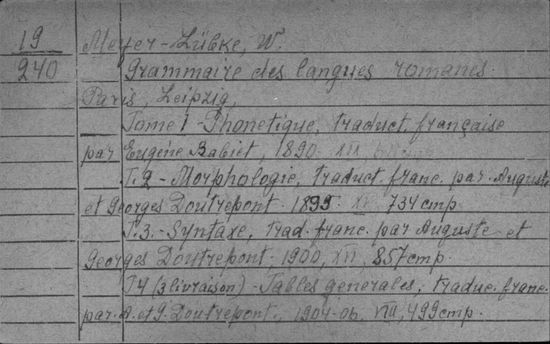 19
240
Meyer-Lübke, W.
Grammaire des langues romanes.
Paris, Leipzig,
Tome 1 - Phonetique, traduct. française
par Eugène Babiet, 1890. XII
T. 2 - Morphologie, traduct. franc. par. Auguste
et Georges Doutrepont. 1895. XI. 734 cmp.
T. 3. - Syntaxe, trad. franc. par Auguste et
Georges Doutrepont. 1900, XII, 857 cmp.
T4 (3 livraison) - Tables generales, traduc. franc.
par. A. et G. Doutrepont., 1904-06. VIII, 499 cmp.